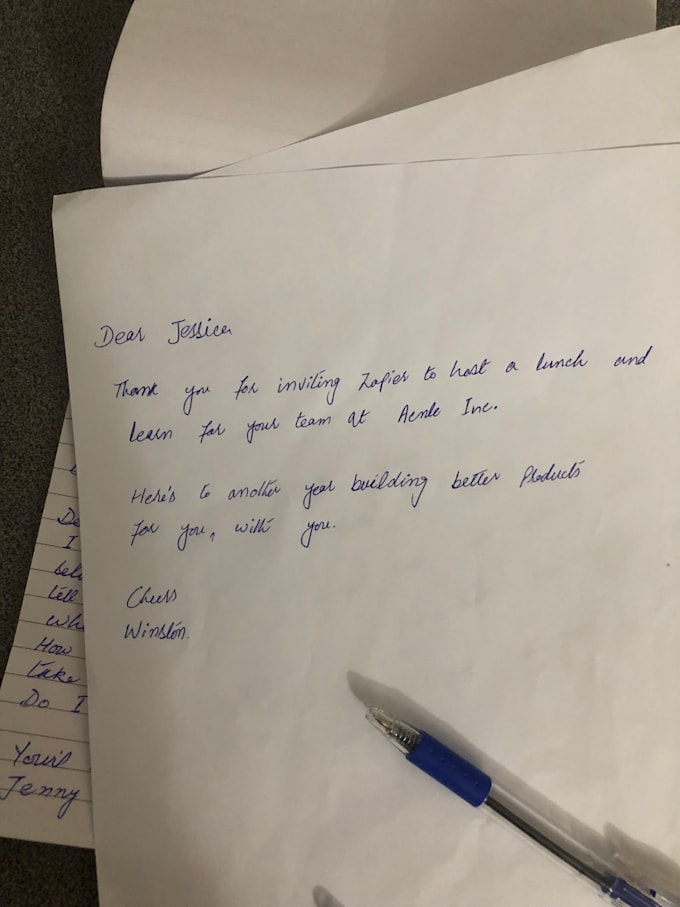 Dear Jessica
Thank you for inviting Zapier to host a lunch and
learn for your team at Acme Inc.
Here's to another year building better Products
for you, with you.
Cheers
Winston.
De
I
bel
tell
wh
How
take
Do I
Your's
Jenny